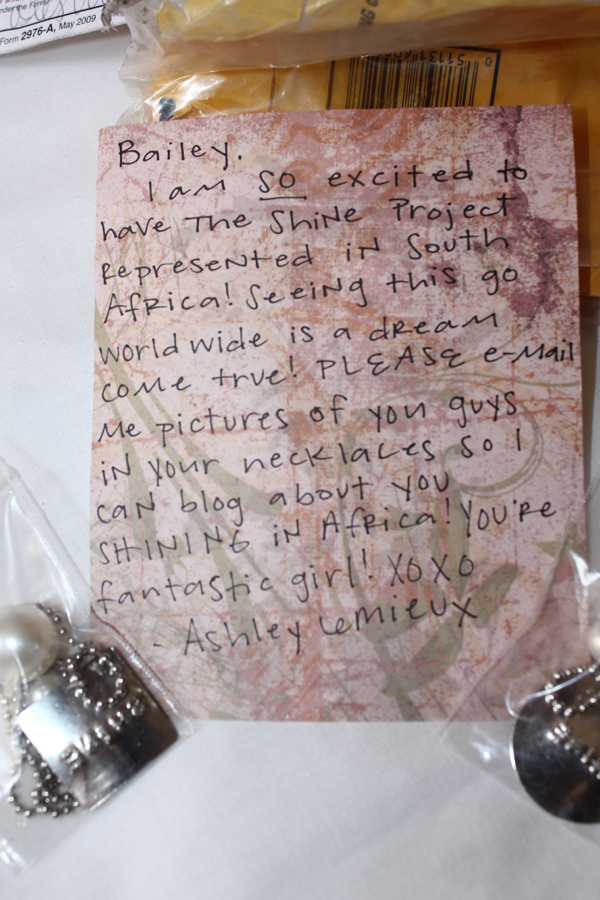 Form 2976-A, May 2009
Bailey.
I am SO excited to
have The Shine Project
Represented in South
Africa! Seeing this go
worldwide is a dream
come true! PLEASE e-mail
me pictures of you guys
in your necklaces so I
can blog about you
SHINING in Africa! You're
fantastic girl! XOXO
- Ashley Lemieux